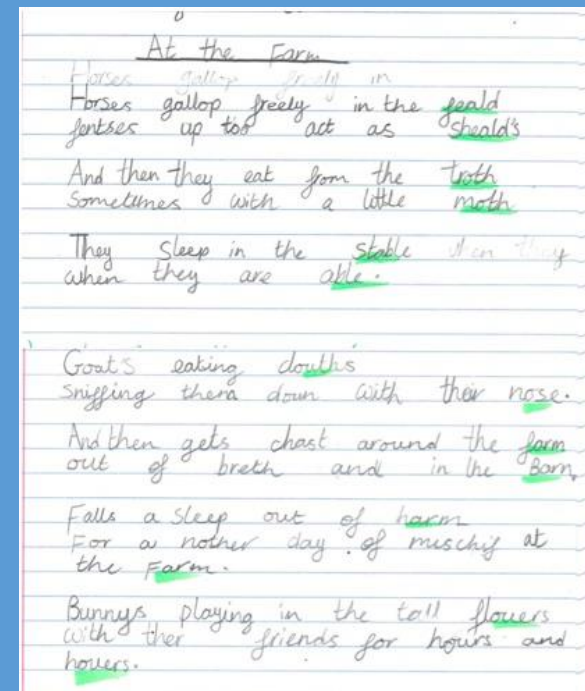 At the Farm
Horses gallop freely in
Horses gallop freely in the feald
fentses up too act as sheald's
And then they eat from the troth
Sometimes with a little moth
They sleep in the stable when they
when they are able.
Goats eating clouths
sniffing them down with their nose.
And then gets chast around the farm
out of breth and in the Barn,
Falls a sleep out of harm
For a nother day of mischif at
the Farm.
Bunnys playing in the tall flowers
with ther friends for hours and
houers.